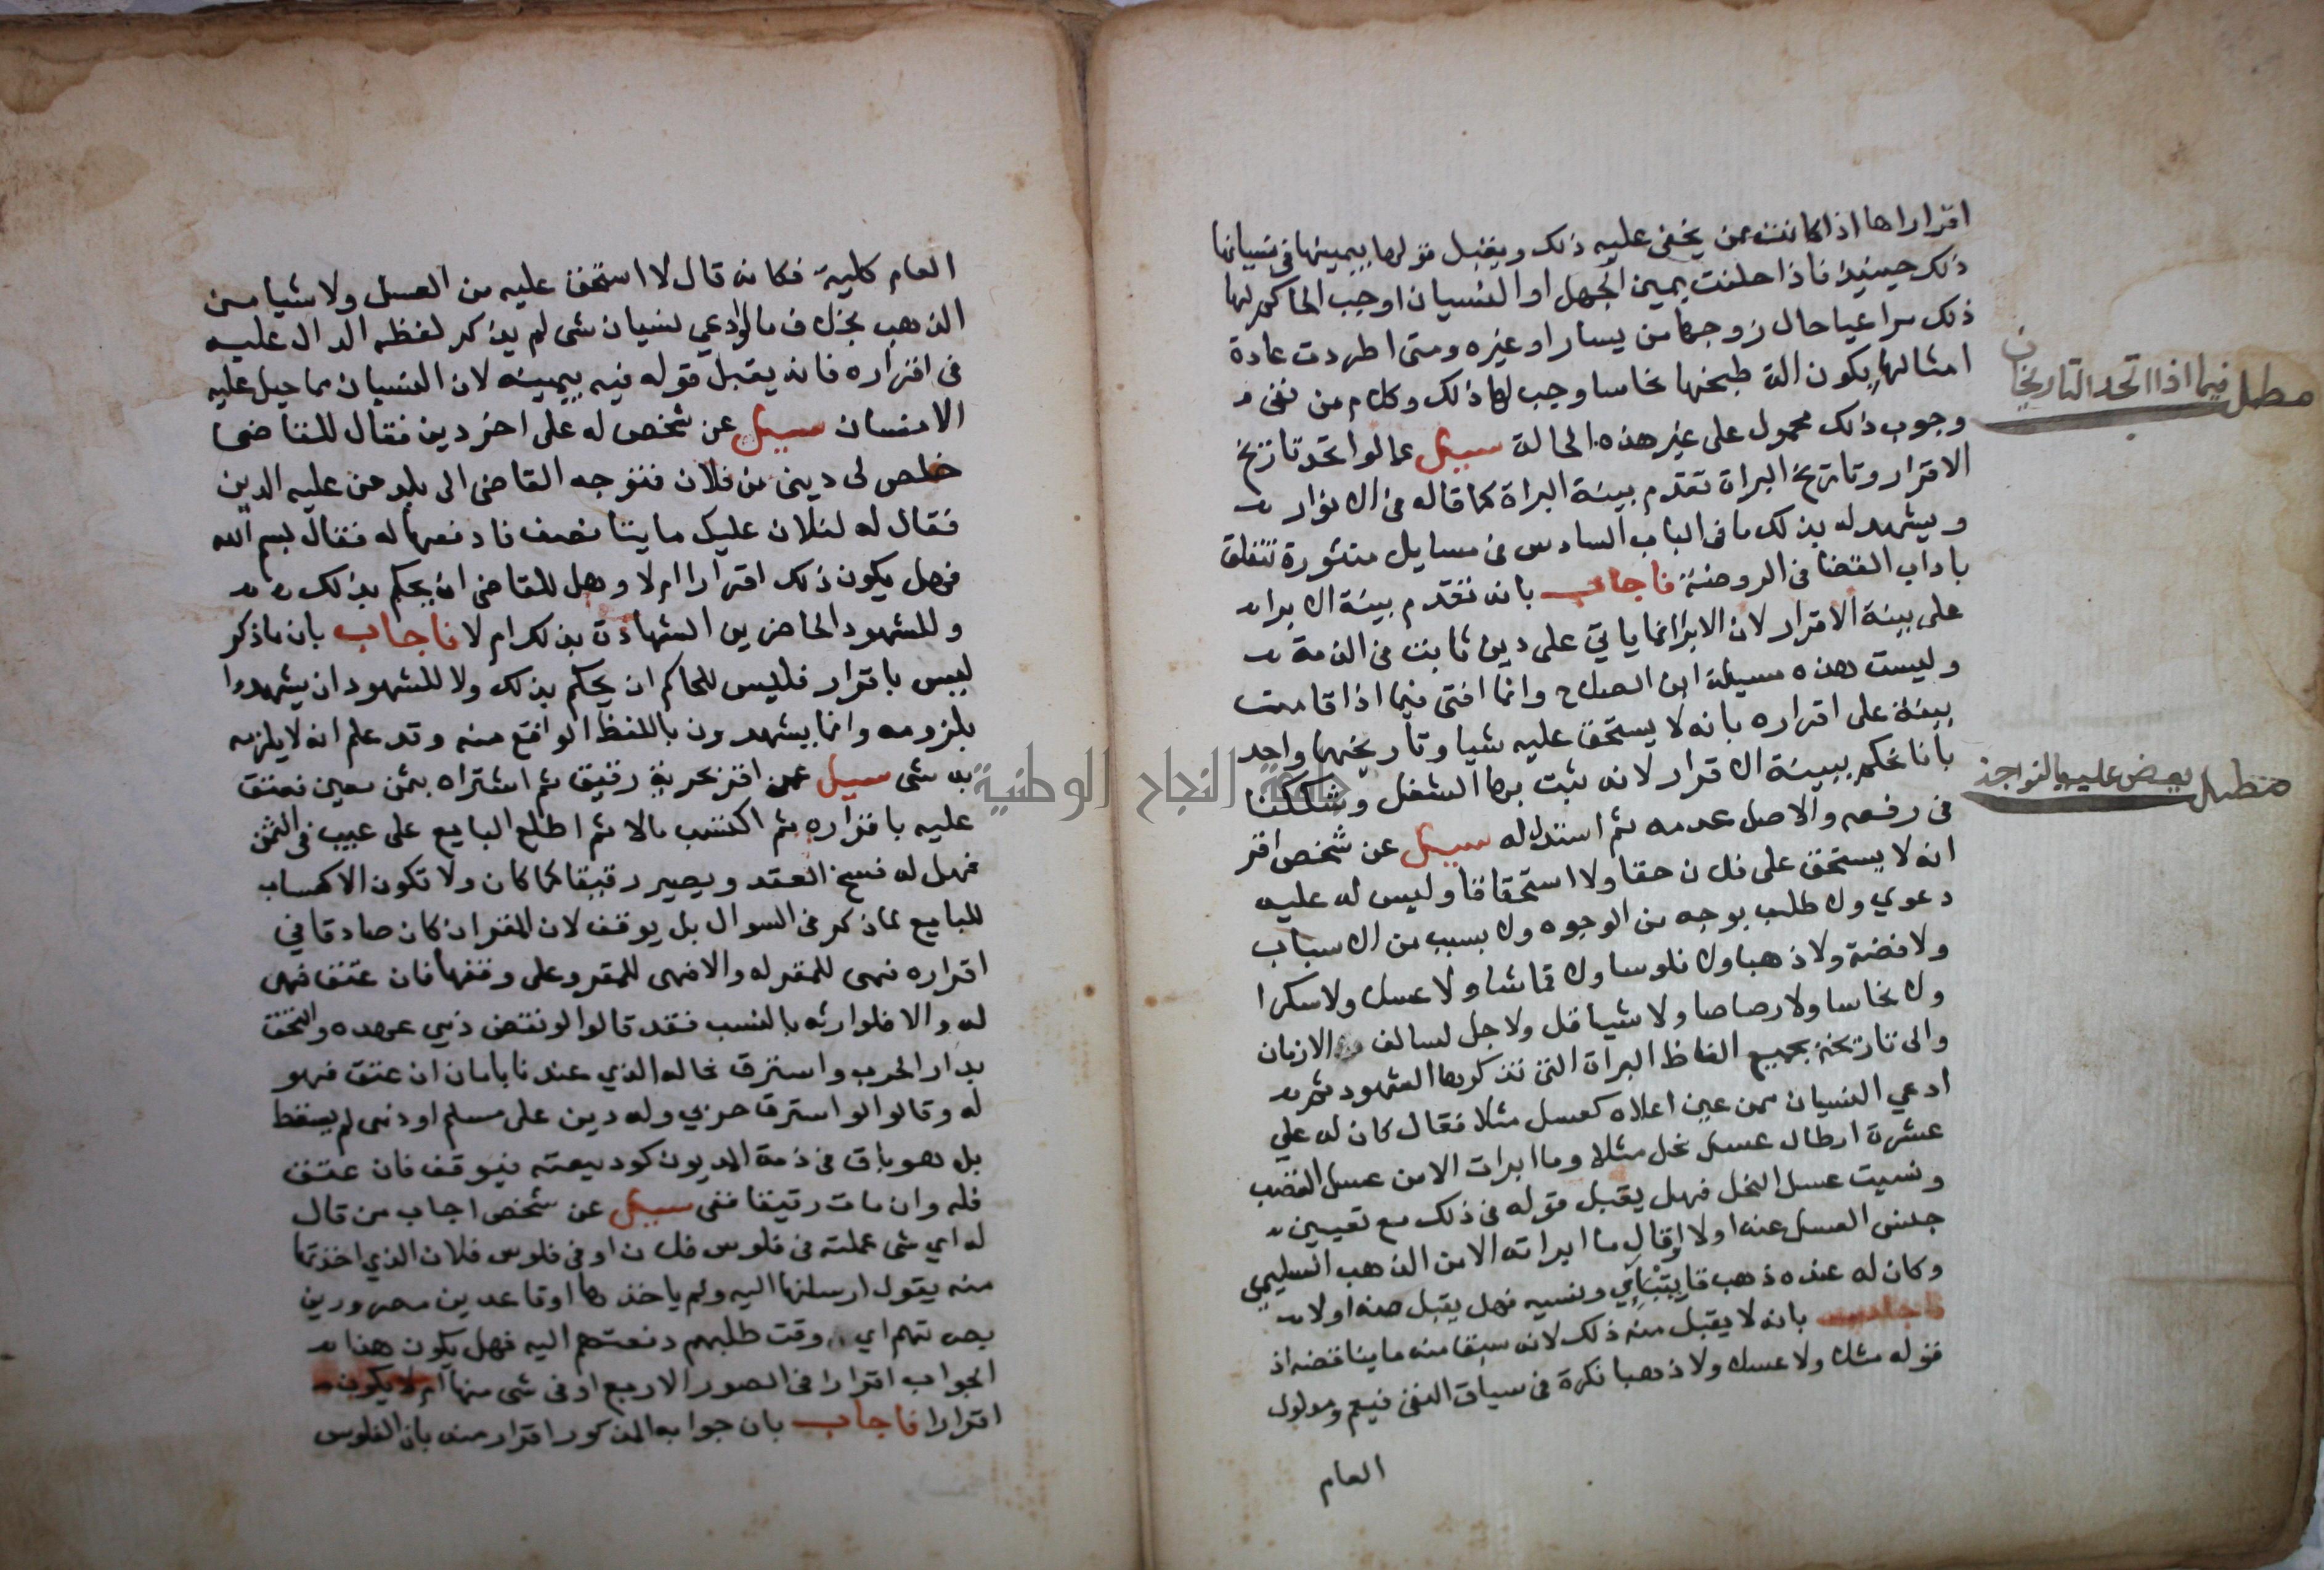 اقرارها اذا كانت ممن يخفى عليه ذلك ويقبل قولها بيمينها في نسيانها
ذلك حينئذ فاذا حلفت يمين الجهل او النسيان اوجب الحاكم لها
ذلك مراعيا حال زوجها من يسار او غيره ومتى اطردت عادة
امثالها بكون الة طبخها نحاسا وجب لها ذلك وكلام من نفى
وجوب ذلك محمول على غير هذه الحالة سيل عما لو اتحد تاريخ
الاقرار وتاريخ البراة تقدم بينة البراة كما قاله في الانوار
ويشهد له بذلك ما في الباب السادس في مسايل منثورة تتعلق
باداب القضا في الروضة فاجاب بانه تقدم بينة الابرا
على بينة الاقرار لان الابرا انما ياتي على دين ثابت في الذمة
وليست هذه مسيلة ابن الصلاح وانما افتى فيما اذا قامت
بينة على اقراره بانه لا يستحق عليه شيا وتاريخهما واحد
بانا نحكم ببينة الاقرار لانه ثبت بها الشغل وشككنا
في رفعه والاصل عدمه ثم استدل له سيل عن شخص اقر
انه لا يستحق على فلان حقا ولا استحقاقا وليس له عليه
دعوي ولا طلب بوجه من الوجوه ولا بسبب من الاسباب
ولا فضة ولا ذهبا ولا فلوسا ولا قماشا ولا عسلا ولا سكرا
ولا نحاسا ولا رصاصا ولا شيا قل ولا جل لسالف الازمان
والى تاريخه بجميع الفاظ البراة التي تذكرها الشهود ثم
ادعي النسيان ممن عين اعلاه كعسل مثلا فقال كان له علي
عشرة ارطال عسل نحل مثلا وما ابرات الا من عسل القصب
ونسيت عسل النحل فهل يقبل قوله في ذلك مع تعيين
جنس العسل عنه اولا او قال ما ابراته الا من الذهب السليمي
وكان له عنده ذهب قايتبايي ونسيه فهل يقبل منه اولا
فاجاب بانه لا يقبل منه ذلك لانه سبقا منه ما يناقضه اذ
قوله مثلا ولا عسلا ولا ذهبا نكرة في سياق النفي فيعم ومدلول
العام
مطلب فيما اذا اتحد التاريخان
مطلب يعض عليه بالنواجذ
العام كلية فكانه قال لا استحق عليه من العسل ولا شيا من
الذهب بخلاف ما لو ادعي نسيان شي لم يذكر لفظه الدال عليه
في اقراره فانه يقبل قوله فيه بيمينه لان النسيان مما جبل عليه
الانسان سيل عن شخص له على اخر دين فقال للقاضي
خلص لي ديني من فلان فتوجه القاضي الى بلد من عليه الدين
فقال له لفلان عليك مايتا نصف فادفعها له فقال بسم الله
فهل يكون ذلك اقرارا ام لا وهل للقاضي ان يحكم بذلك
وللشهود الحاضرين الشهادة بذلك ام لا فاجاب بان ما ذكر
ليس باقرار فليس للحاكم ان يحكم بذلك ولا للشهود ان يشهدوا
بلزومه وانما يشهدون باللفظ الواقع منه وقد علم انه لا يلزمه
به شي سيل عمن اقر بحرية رقيق ثم اشتراه بثمن معين فعتق
عليه باقراره ثم اكتسب مالا ثم اطلع البايع على عيب في الثمن
فهل له فسخ العقد ويصير رقيقا كما كان ولا تكون الاكساب
للبايع لما ذكر في السوال بل يوقف لان المقر ان كان صادقا في
اقراره فهى للمقر له والا فهى للمقر وعلى وقفها فان عتق فهى
له والا فلوارثه بالنسب فقد قالوا لو نقض ذمي عهده والتحق
بدار الحرب واسترق فماله الذي عندنا بامان ان عتق فهو
له وقالوا لو استرق حربي وله دين على مسلم او ذمى لم يسقط
بل هو باق في ذمة المديون كوديعته فيوقف فان عتق
فله وان مات رقيقا ففى سيل عن شخص اجاب من قال
له اي شي عملته في فلوس فلان او في فلوس فلان الذي اخذتها
منه يقول ارسلتها اليه ولم ياخذها او قاعدين مصرورين
بصرتهم اي وقت طلبهم دفعتهم اليه فهل يكون هذا
الجواب اقرارا في الصور الاربع او في شي منها ام لا يكون
اقرارا فاجاب بان جوابه المذكور اقرار منه بان الفلوس
جامعة النجاح الوطنية